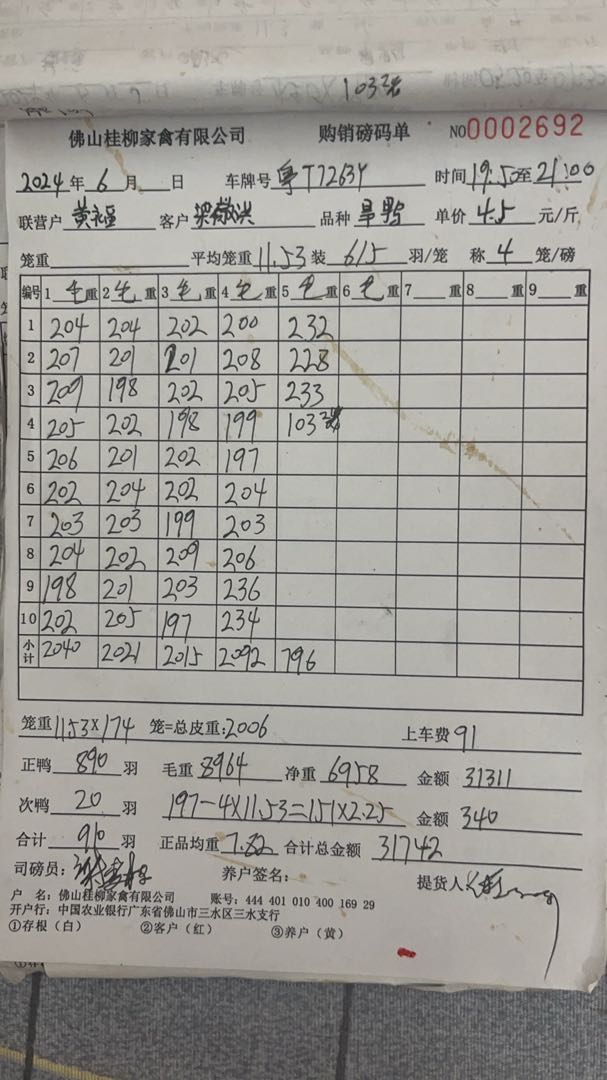 103 2笼
佛山桂柳家禽有限公司 购销磅码单 NO0002692
2024年6月 日 车牌号 粤T7263Y 时间19:50至21:00
联营户 黄永 客户 梁 洪 品种 旱鸭 单价 4.5 元/斤
笼重 平均笼重 11.53 装 6/5 羽/笼 称 4 笼/磅
编号 1 毛重 2 毛重 3 毛重 4 毛重 5 毛重 6 毛重 7 重 8 重 9 重
1 204 204 202 200 232
2 207 201 201 208 228
3 209 198 202 205 233
4 205 202 198 199 103
5 206 201 202 197
6 202 204 202 204
7 203 203 199 203
8 204 202 209 206
9 198 201 203 236
10 202 205 197 234
小计 2040 2021 2015 2092 796
笼重 11.53×174 笼=总皮重:2006 上车费 91
正鸭 890 羽 毛重 8964 净重 6958 金额 31311
次鸭 20 羽 197-4×11.53=151×2.25 金额 340
合计 910 羽 正品均重 7.82 合计总金额 31742
司磅员: 养户签名: 提货人
户 名: 佛山桂柳家禽有限公司 账号: 444 401 010 400 169 29
开户行: 中国农业银行广东省佛山市三水区三水支行
①存根（白） ②客户（红） ③养户（黄）